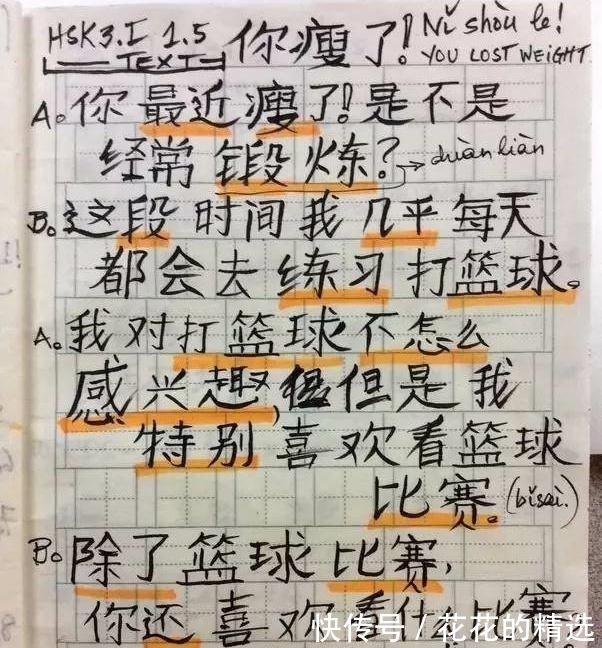 HSK3.I 1.5 你瘦了! Nǐ shòu le!
TEXT YOU LOST WEIGHT
A。你最近瘦了!是不是
经常锻炼?→duànliàn
B。这段时间我几乎每天
都会去练习打篮球。
A。我对打篮球不怎么
感兴趣,但是我
特别喜欢看篮球
比赛。(bǐsài.)
B。除了篮球比赛,
你还喜欢看什么比赛
快传号 / 花花的精选